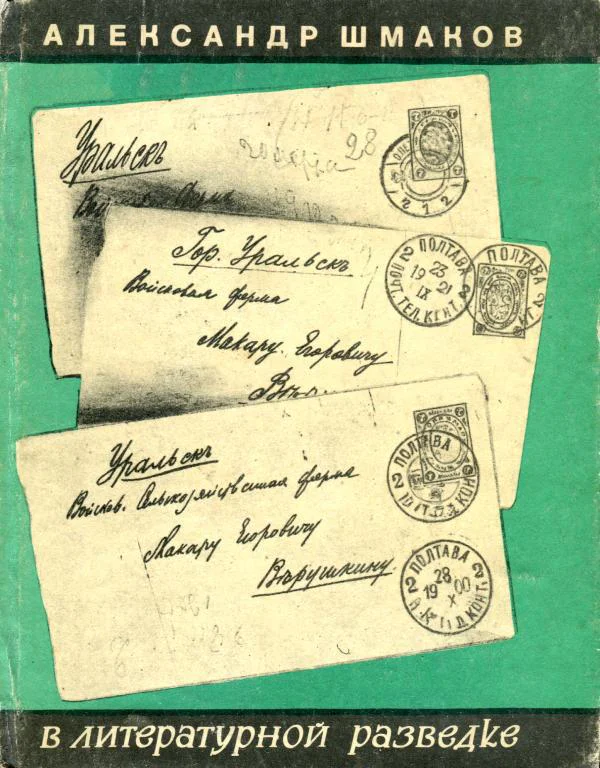 АЛЕКСАНДР ШМАКОВ
Уральскъ
28
212
Гор. Уральскъ
Войсковая ферма
Макару Егоровичу
ПОЛТАВА
23
19 21
IX
2 ПОЧТ. ТЕЛ. КОНТ. 2
ПОЛТАВА
2
Уральскъ
Войсков. Сельскохозяйственная ферма
Макару Егоровичу
Вѣрушкину
ПОЛТАВА
2
ПОЛТАВА
28
19 00
X
2 2
КОНТ.
в литературной разведке